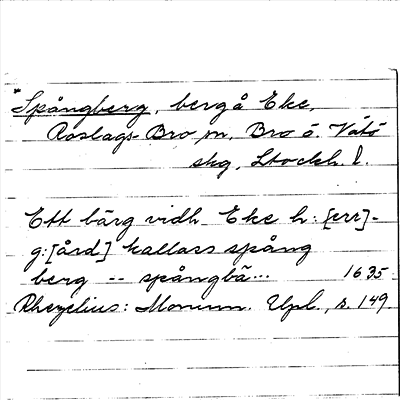 Spångberg, berg å Eke,
Roslags-Bro sn, Bro o. Vätö
skg, Stockh. l.
Ett bärg widh Eke h:[err]-
g:[ård] kallass spång
berg -- spångbä... 1635.
Rhezelius: Monum. Upl., s. 149.